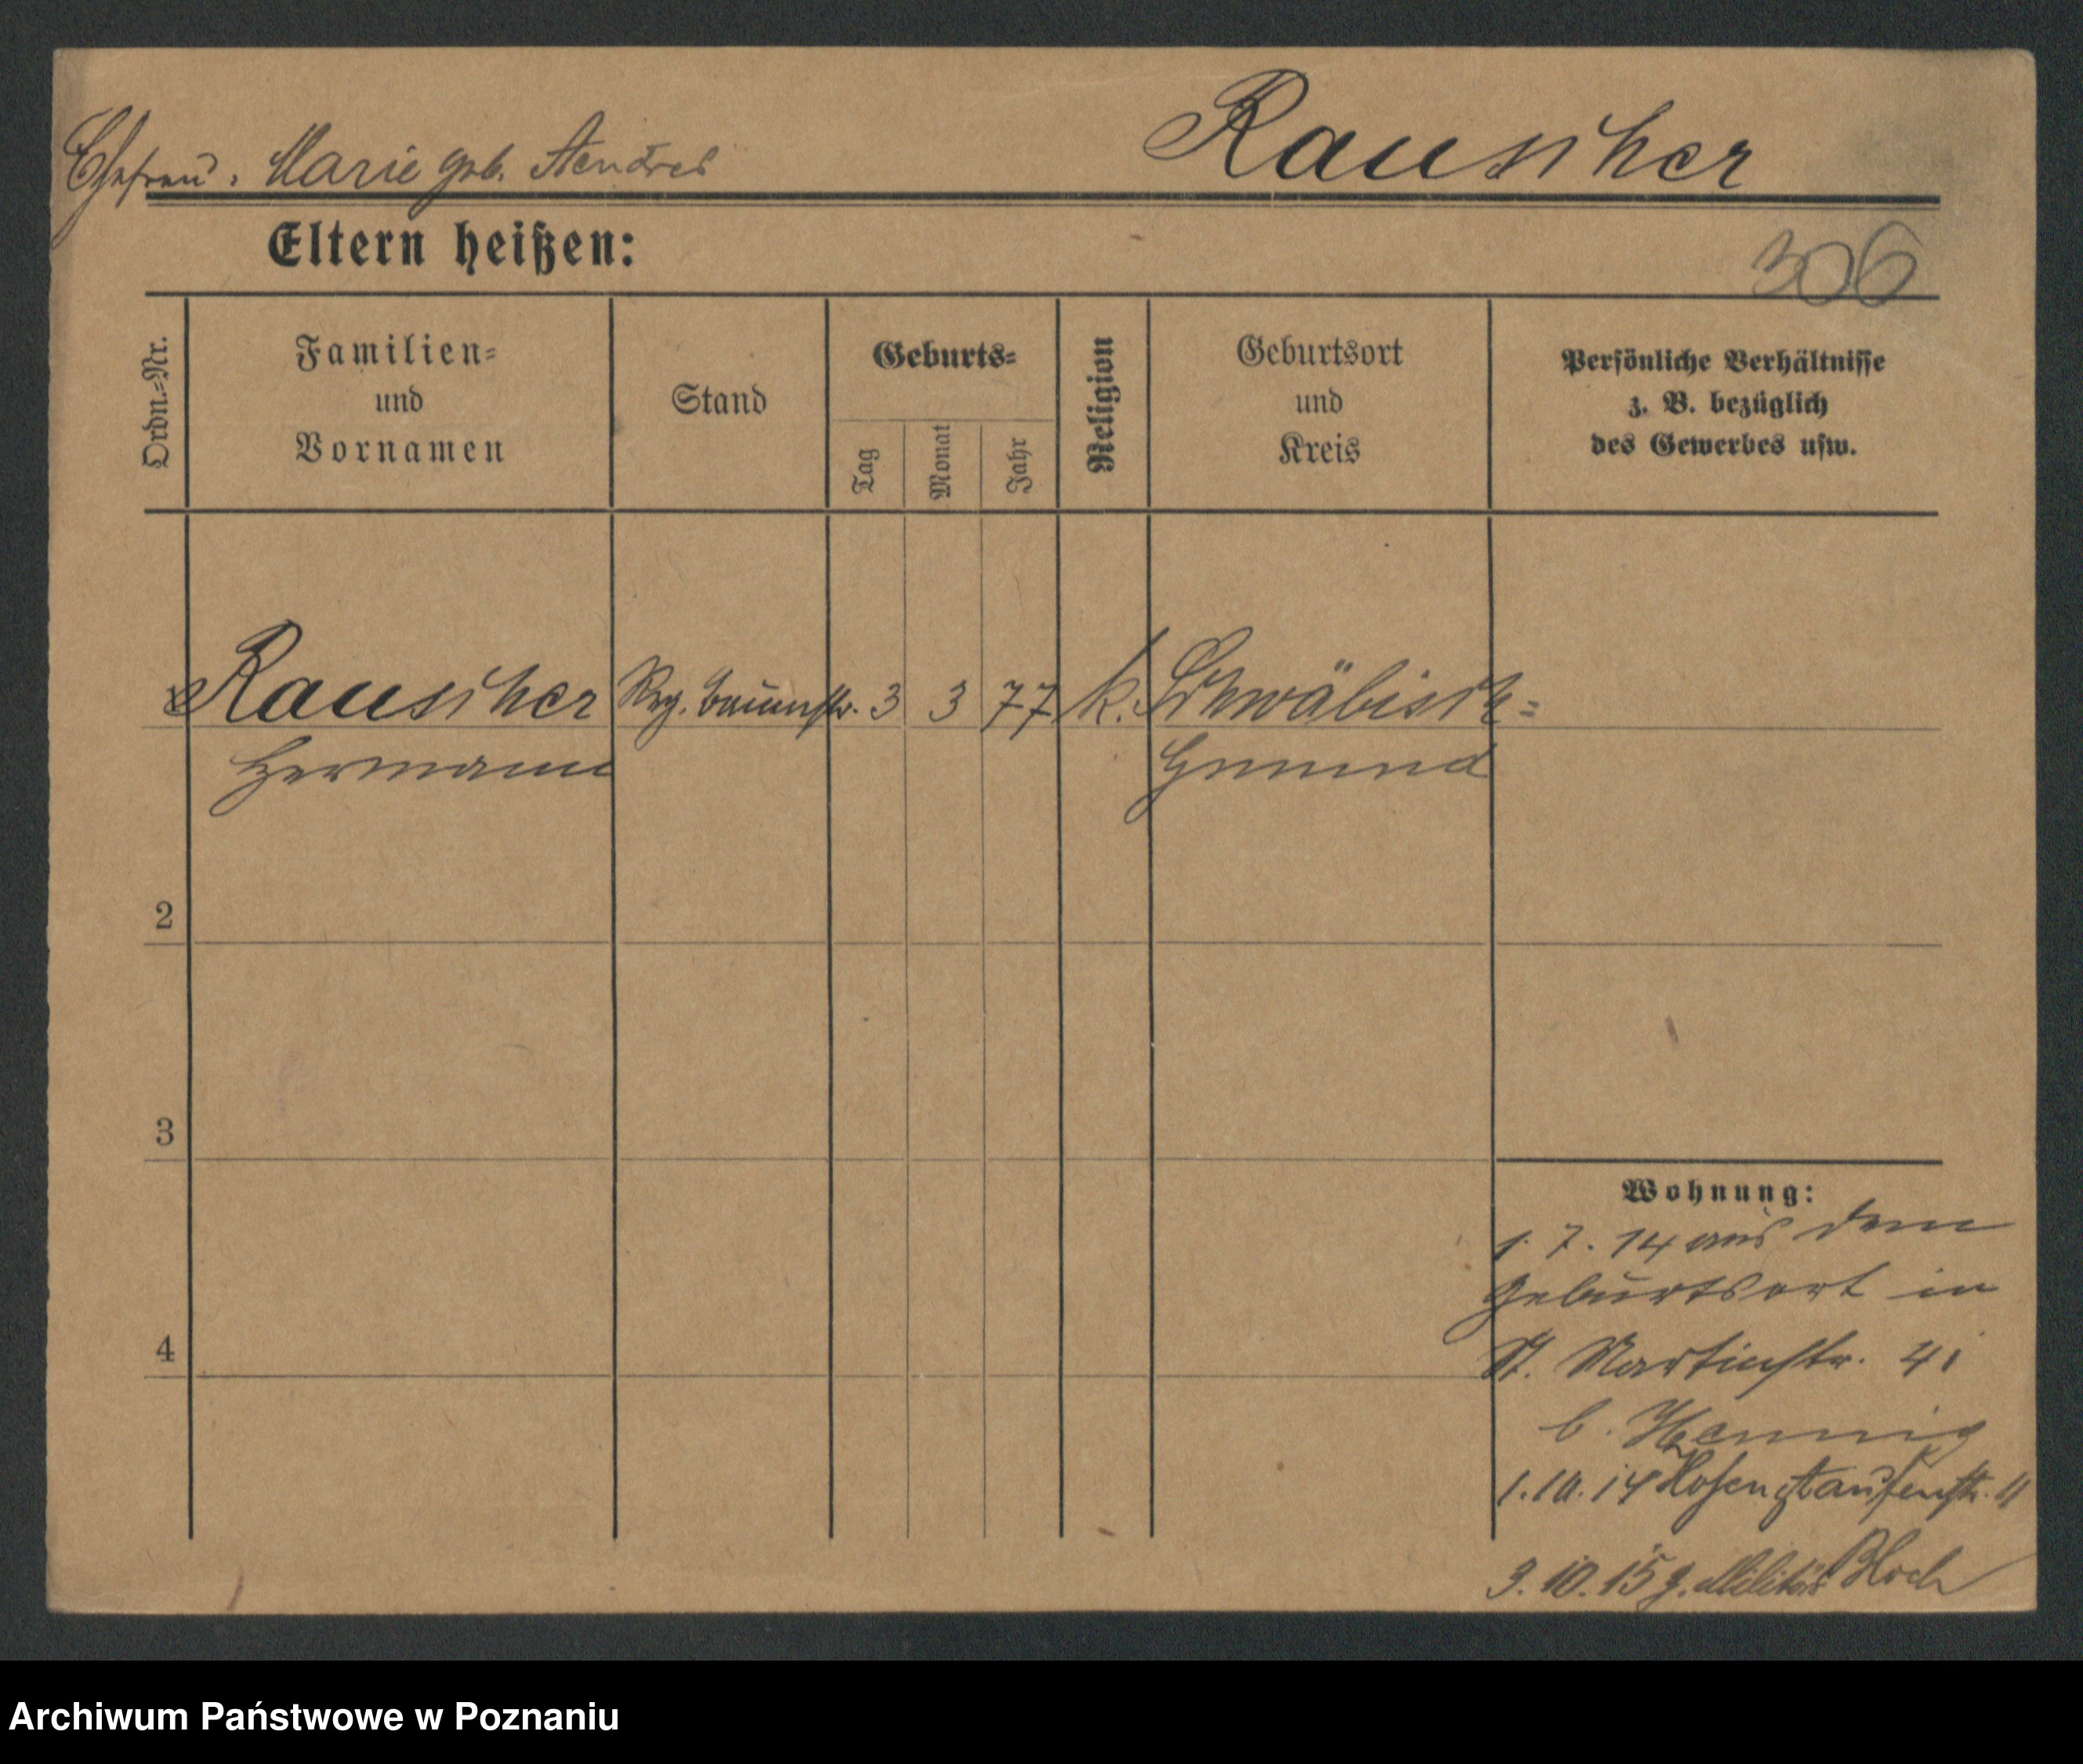 Rauscher
Ehefrau: Marie geb. Aendres
Eltern heißen:
306
Ordn.-Nr.
Familien-
und
Vornamen
Stand
Geburts-
Tag
Monat
Jahr
Religion
Geburtsort
und
Kreis
Persönliche Verhältnisse
z. B. bezüglich
des Gewerbes usw.
1 Rauscher Reg. baumstr. 3 3 77 k. Schwäbisch-
Hermann Gmünd
2
3
4
Wohnung:
1. 7. 14 aus dem
Geburtsort in
St. Martinstr. 41
b. Hennig
1.10.14 Hohenstaufenstr. 11
3.10.15 z. Militär
Archiwum Państwowe w Poznaniu